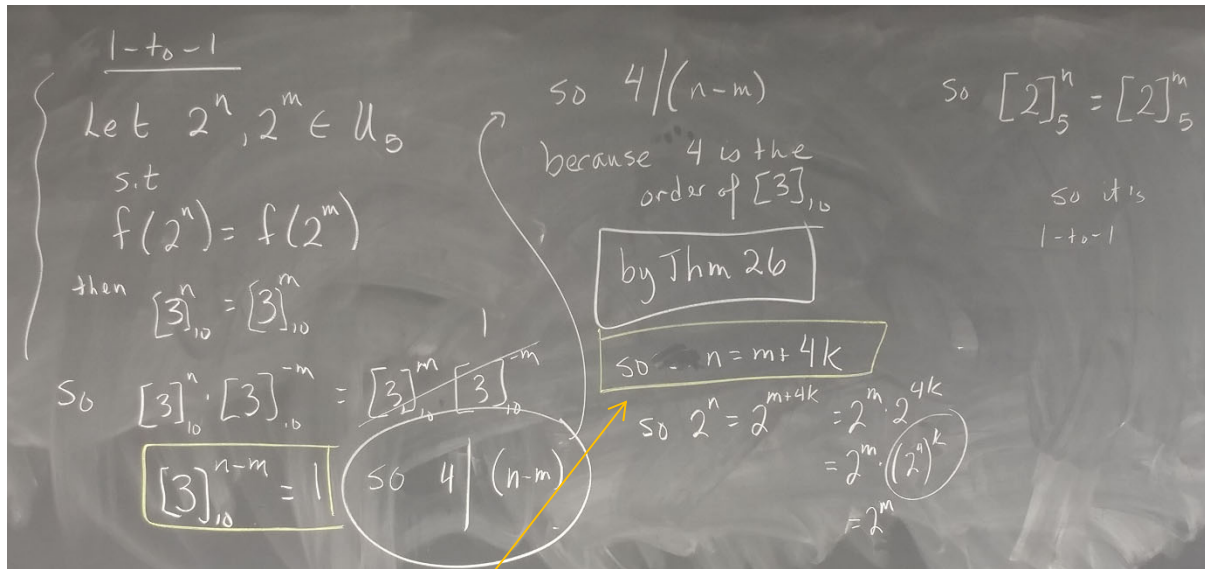 1-to-1
Let 2^n, 2^m ∈ U_5
s.t
f(2^n) = f(2^m)
then [3]_10^n = [3]_10^m
So [3]_10^n · [3]_10^-m = [3]_10^m [3]_10^-m 1
[3]_10^n-m = 1
so 4 | (n-m)
so 4 | (n-m)
because 4 is the
order of [3]_10
by Thm 26
so... n = m+4k
so 2^n = 2^m+4k = 2^m · 2^4k
= 2^m · (2^4)^k
= 2^m
so [2]_5^n = [2]_5^m
so it's
1-to-1